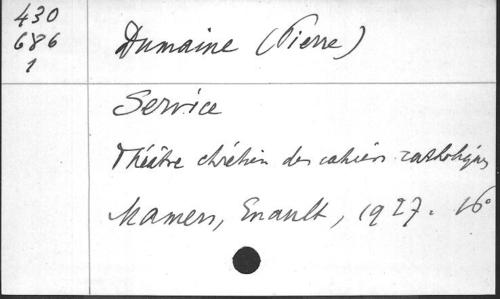 430
686
1
Dumaine (Pierre)
Service
Théâtre chrétien des cahiers catholiques
Mamers, Enault, 1927. 16°